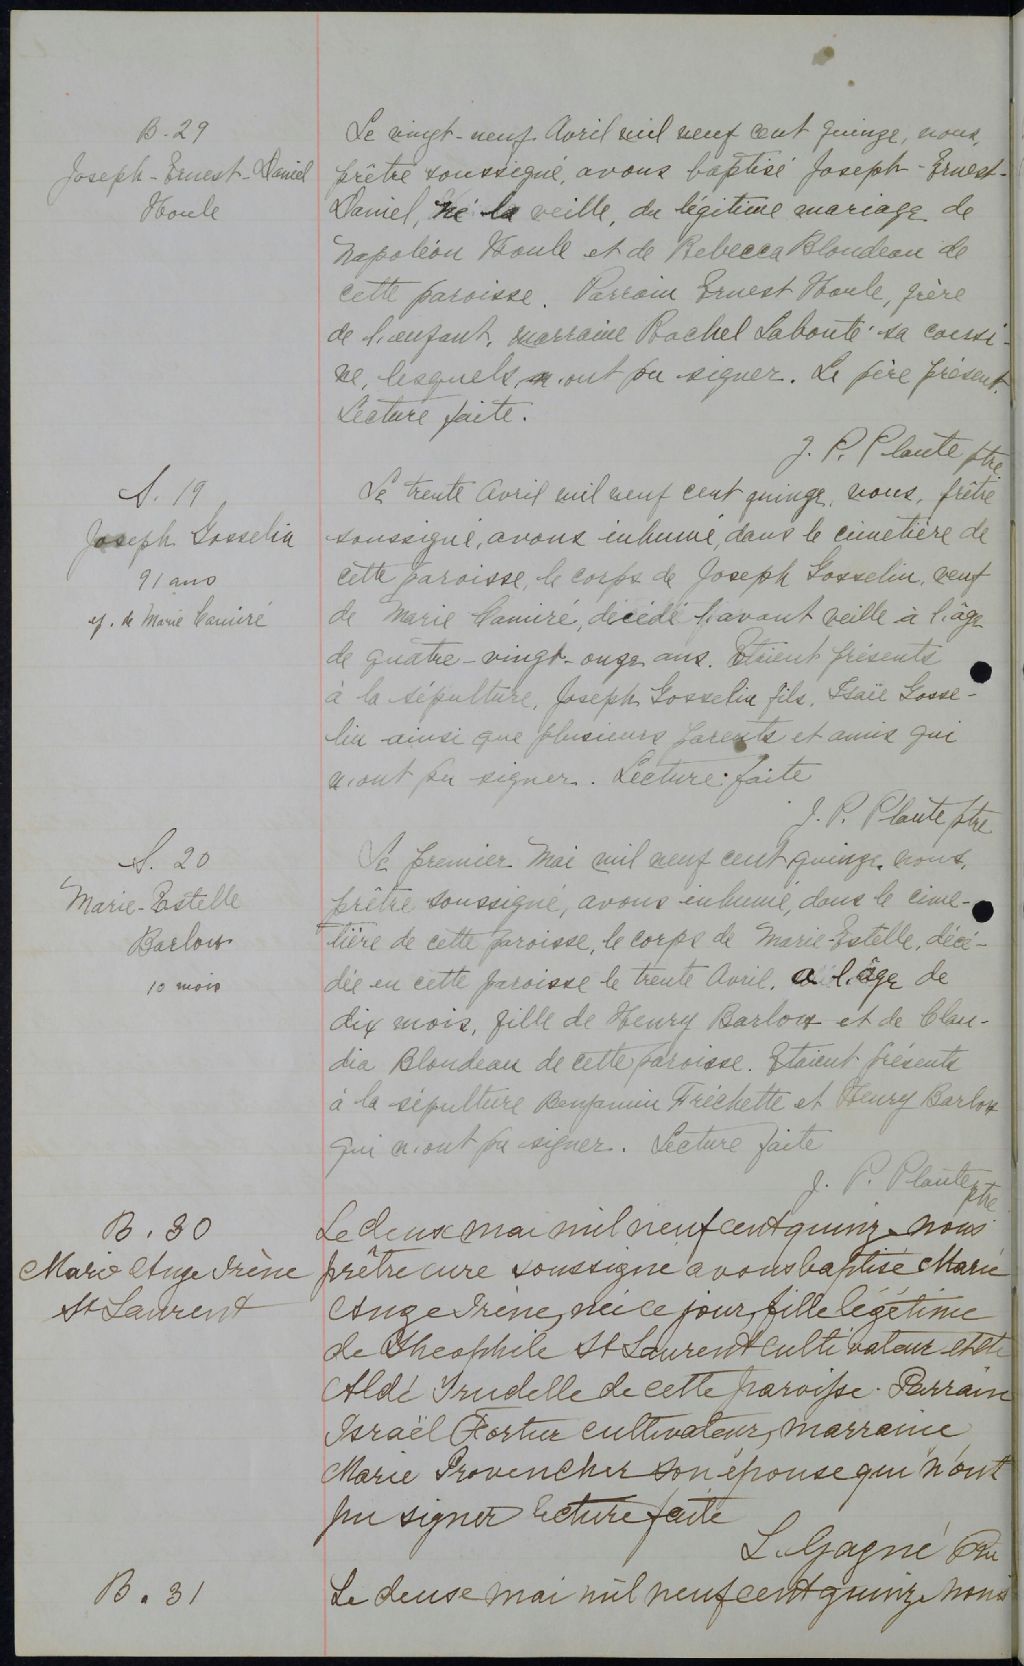 B. 29
Joseph-Ernest-Daniel
Houle
Le vingt-neuf Avril mil neuf cent quinze, nous,
prêtre soussigné, avons baptisé Joseph-Ernest-
Daniel, né la veille, du légitime mariage de
Napoléon Houle et de Rebecca Blondeau de
cette paroisse. Parrain Ernest Houle, frère
de l'enfant, marraine Rachel Labonté sa cousi-
ne, lesquels n'ont pu signer. Le père présent.
Lecture faite.
J. P. Plante ptre
S. 19
Joseph Gosselin
91 ans
ép. de Marie Camiré
Le trente Avril mil neuf cent quinze, nous, prêtre
soussigné, avons inhumé, dans le cimetière de
cette paroisse, le corps de Joseph Gosselin, veuf
de Marie Camiré, décédé l'avant veille à l'âge
de quatre-vingt-onze ans. Etaient présents
à la sépulture, Joseph Gosselin fils, Isaïe Gosse-
lin ainsi que plusieurs parents et amis qui
n'ont pu signer. Lecture faite
J. P. Plante ptre
S. 20
Marie-Estelle
Barlow
10 mois
Le premier Mai mil neuf cent quinze, nous,
prêtre soussigné, avons inhumé, dans le cime-
tière de cette paroisse, le corps de Marie-Estelle, décé-
dée en cette paroisse le trente Avril, a l'âge de
dix mois, fille de Henry Barlow et de Clau-
dia Blondeau de cette paroisse. Etaient présents
à la sépulture Benjamin Fréchette et Henry Barlow
qui n'ont pu signer. Lecture faite
J. P. Plante ptre
B. 30
Marie Ange Irène
St Laurent
Le deux mai mil neuf cent quinze nous
prêtre cure soussigne avons baptisé Marie
Ange Irène, née ce jour, fille légetime
de Théophile St Laurent cultivateur et de
Aldé Trudelle de cette paroisse. Parrain
Israël Fortier cultivateur, marraine
Marie Provencher son épouse qui n'ont
pu signer lecture faite
L. Gagné Ptre
B. 31
Le deuse mai mil neuf cent quinze nous